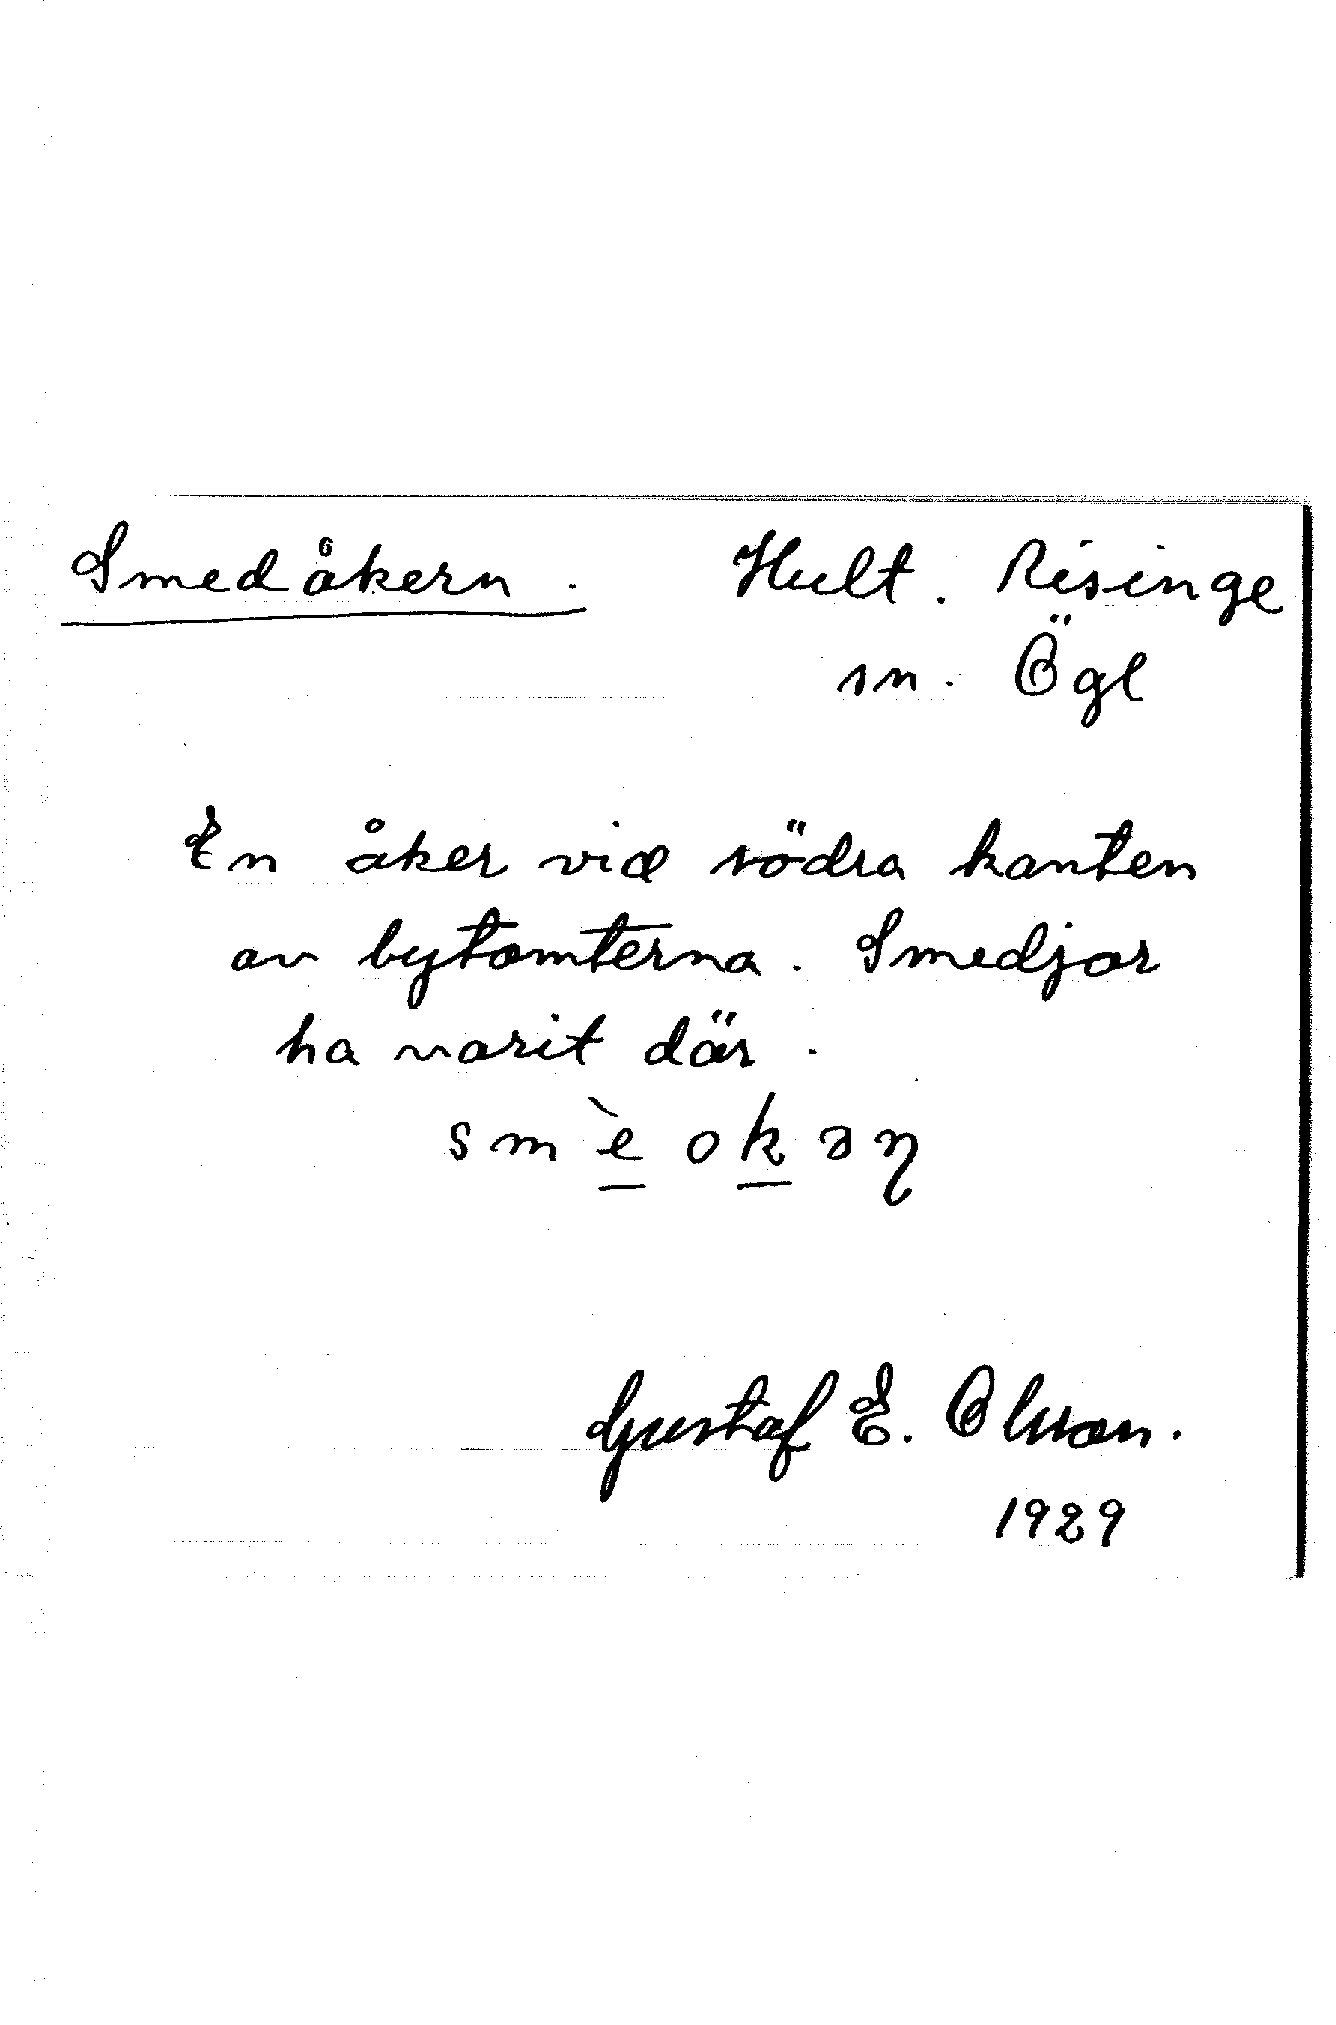 Smedåkern. Hult. Risinge
sn. Ögl
En åker vid södra kanten
av bytomterna. Smedjor
ha varit där.
smè̲ok̲əɳ
Gustaf E. Olsson.
1929